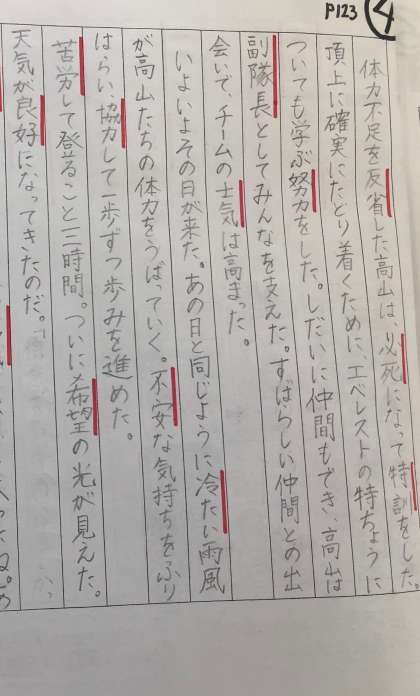 P123
④
体力不足を反省した高山は、必死になって特訓をした。
頂上に確実にたどり着くために、エベレストの特ちょうに
ついても学ぶ努力をした。しだいに仲間もでき、高山は
副隊長としてみんなを支えた。すばらしい仲間との出
会いで、チームの士気は高まった。
いよいよその日が来た。あの日と同じように冷たい雨風
が高山たちの体力をうばっていく。不安な気持ちをふり
はらい、協力して一歩ずつ歩みを進めた。
苦労して登ること三時間。ついに希望の光が見えた。
天気が良好になってきたのだ。